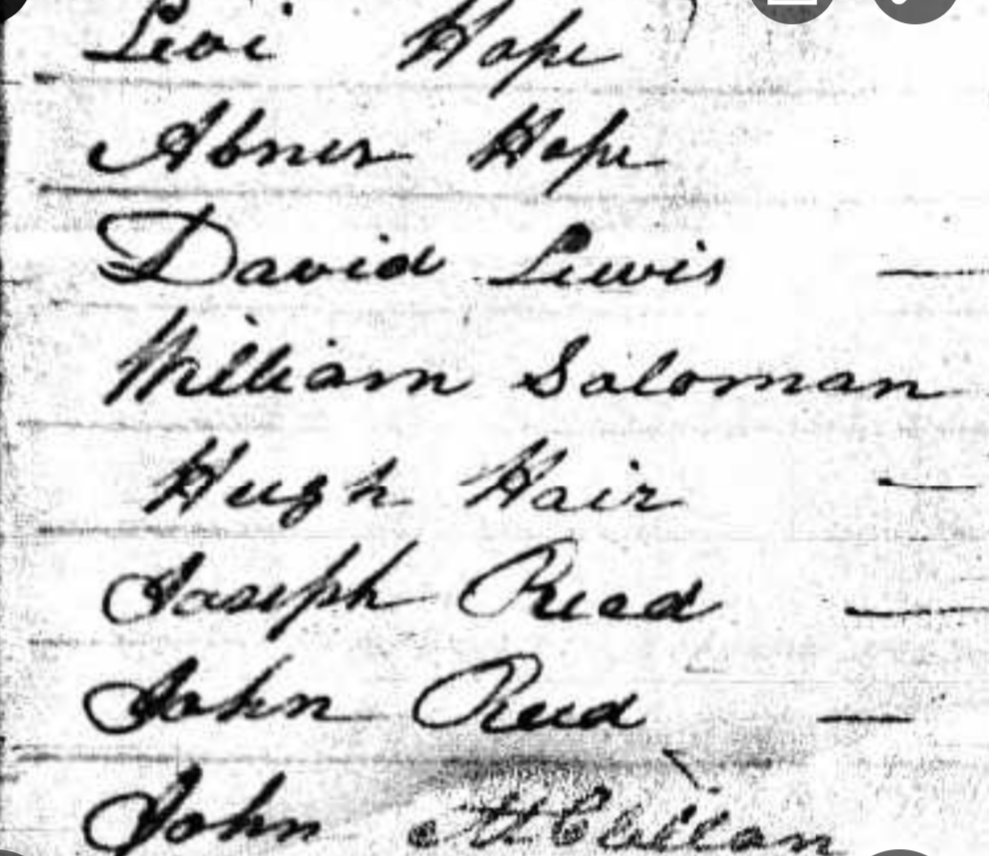 Levi Hope
Abner Hope
David Lewis
William Saloman
Hugh Hair
Joseph Reed
John Reed
John McClellan